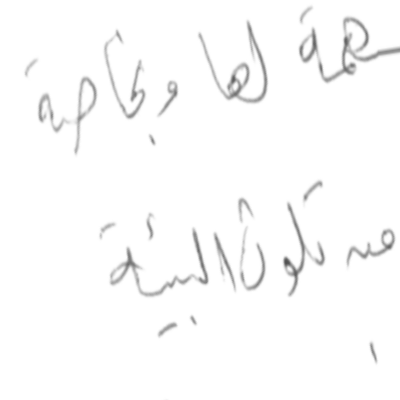 مهمة لها وبخاصة
من تلوث البيئة